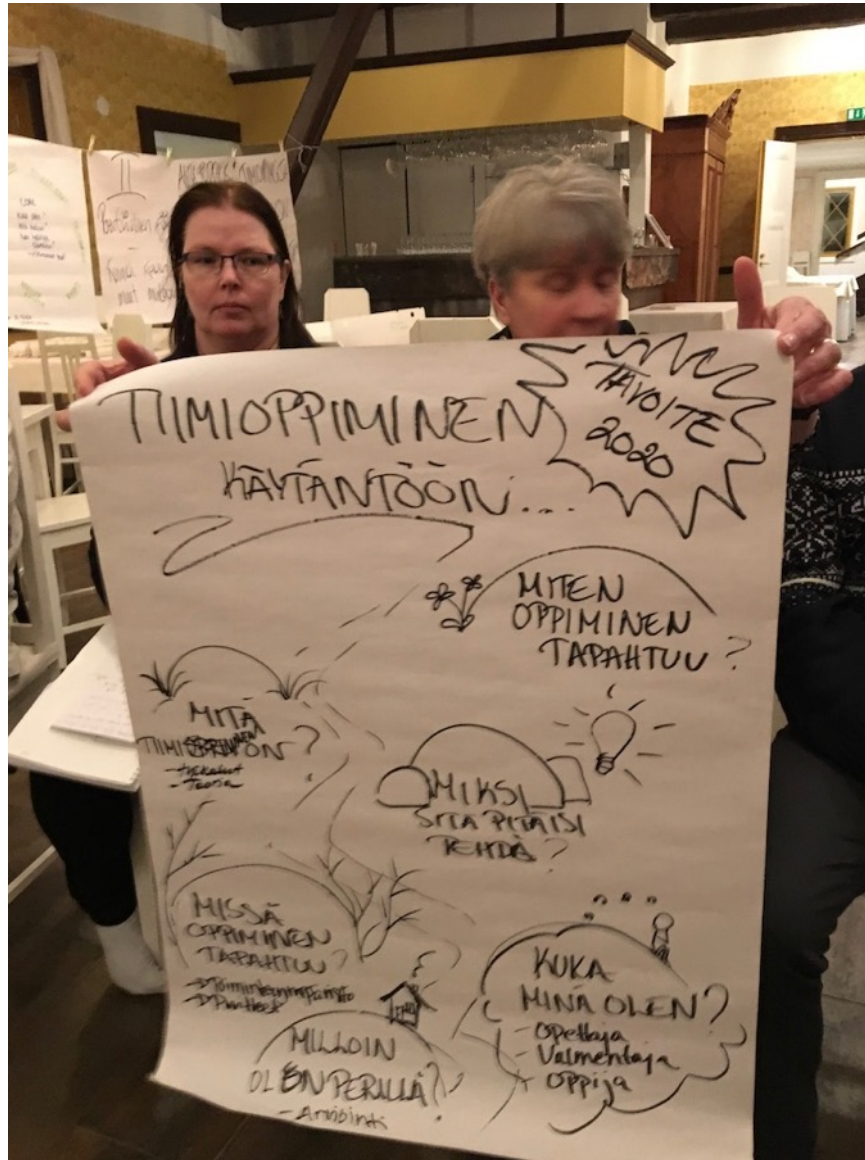 TIIMIOPPIMINEN
KÄYTÄNTÖÖN...
TAVOITE
2020
MITEN
OPPIMINEN
TAPAHTUU?
MITÄ
TIIMIOPPIMINEN ON?
- Työkalut
- Teoria
MIKSI
SITÄ PITÄISI
TEHDÄ?
MISSÄ
OPPIMINEN
TAPAHTUU?
→ Toimintaympäristö
→ Puitteet
KUKA
MINÄ OLEN?
- Opettaja
- Valmentaja
- Oppija
MILLOIN
OLEN PERILLÄ?
- Arviointi